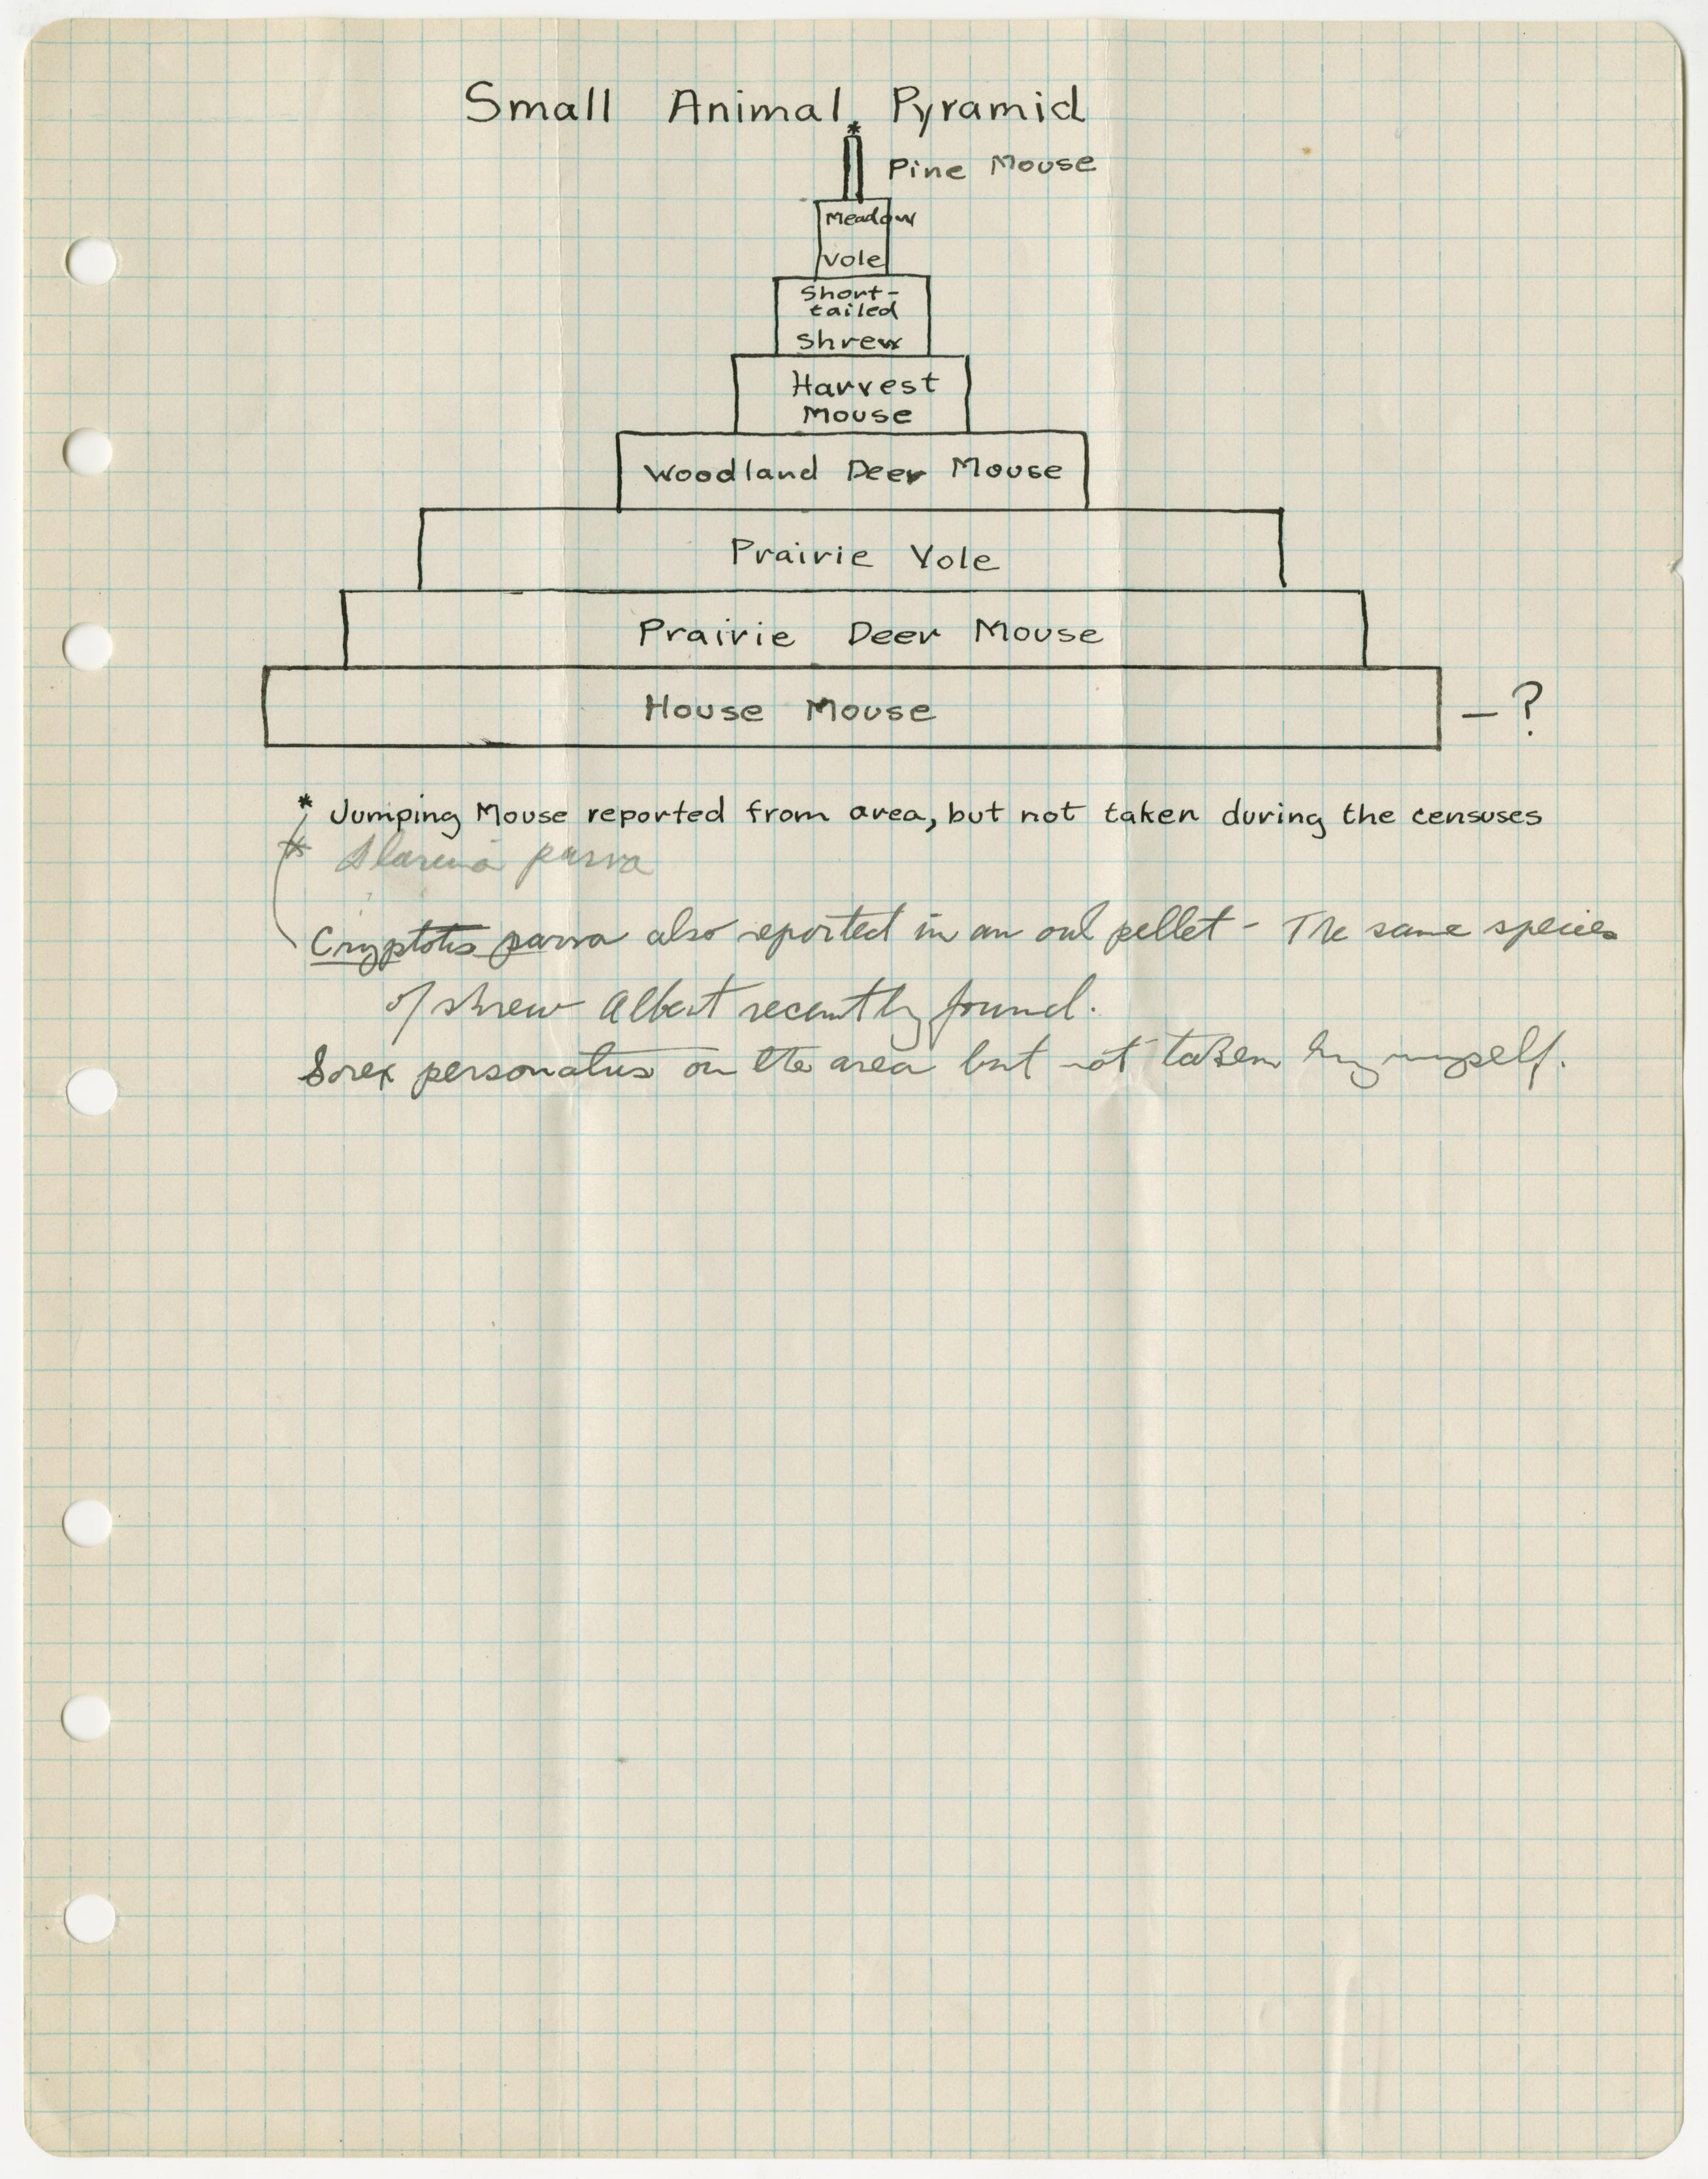 Small Animal Pyramid
*
Pine Mouse
Meadow
Vole
Short-
tailed
Shrew
Harvest
Mouse
Woodland Deer Mouse
Prairie Vole
Prairie Deer Mouse
House Mouse — ?
* Jumping Mouse reported from area, but not taken during the censuses
* Blarina parva
Cryptotis parva also reported in an owl pellet - The same species
of shrew Albert recently found.
Sorex personatus on the area but not taken by myself.